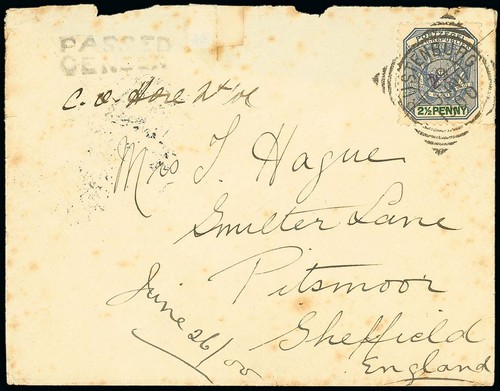 PASSED
CENSOR
POSTZEGEL
2½ PENNY
RUSTENBURG
C. O. Hore Lt Col
Mrs T. Hague
Smilter Lane
Pitsmoor
Sheffield
England
June 26/00